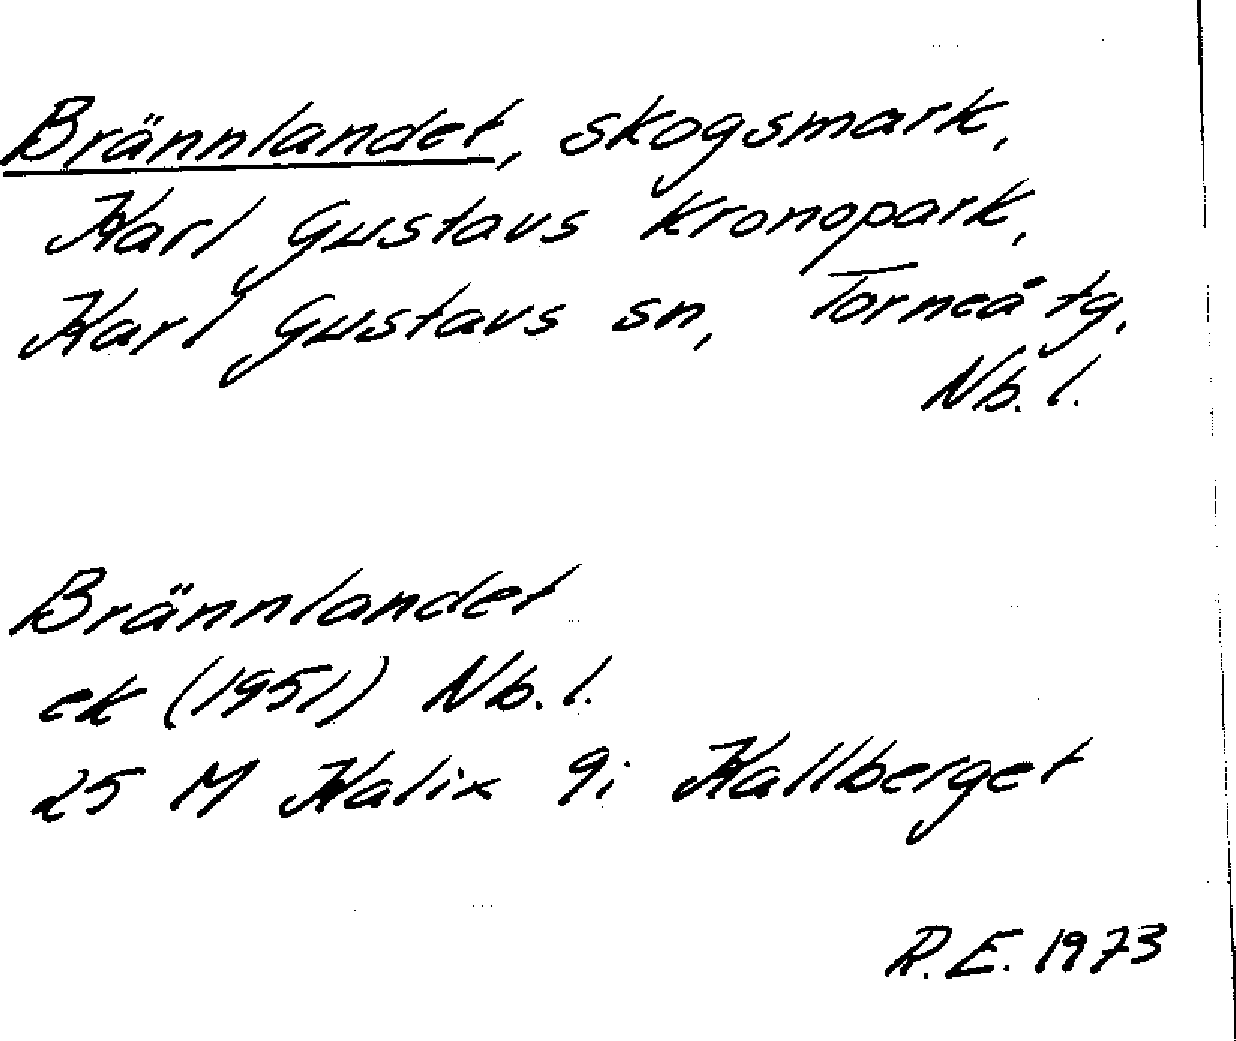 Brännlandet, skogsmark,
Karl Gustavs kronopark,
Karl Gustavs sn, Torneå tg,
Nb. l.
Brännlandet
ek (1951) Nb. l.
25 M Kalix 9i Kallberget
R.E. 1973